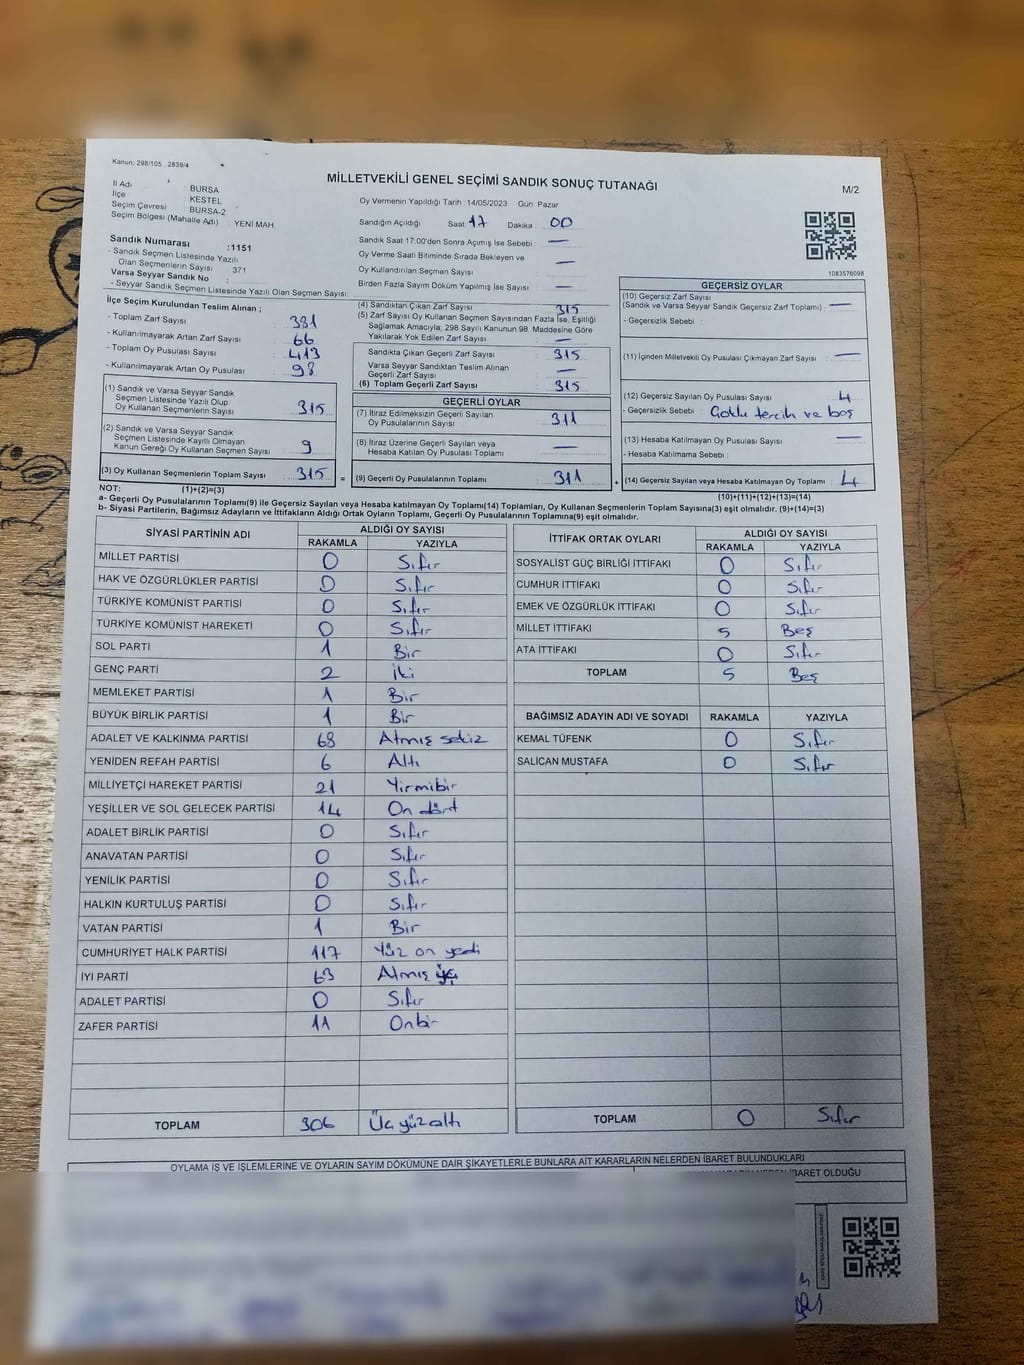 Kanun: 298/105 , 2839/4
MİLLETVEKİLİ GENEL SEÇİMİ SANDIK SONUÇ TUTANAĞI
M/2
İl Adı : BURSA
İlçe KESTEL
Seçim Çevresi : BURSA-2
Seçim Bölgesi (Mahalle Adı) : YENİ MAH.
Sandık Numarası :1151
- Sandık Seçmen Listesinde Yazılı
Olan Seçmenlerin Sayısı : 371
Varsa Seyyar Sandık No :
- Seyyar Sandık Seçmen Listesinde Yazılı Olan Seçmen Sayısı:
Oy Vermenin Yapıldığı Tarih :14/05/2023 Gün :Pazar
Sandığın Açıldığı Saat :17 Dakika :00
Sandık Saat 17:00'den Sonra Açılmış İse Sebebi : —
Oy Verme Saati Bitiminde Sırada Bekleyen ve
Oy Kullandırılan Seçmen Sayısı : —
Birden Fazla Sayım Döküm Yapılmış İse Sayısı : —
1083576098
İlçe Seçim Kurulundan Teslim Alınan ;
- Toplam Zarf Sayısı : 381
- Kullanılmayarak Artan Zarf Sayısı : 66
- Toplam Oy Pusulası Sayısı : 413
- Kullanılmayarak Artan Oy Pusulası : 98
(1) Sandık ve Varsa Seyyar Sandık
Seçmen Listesinde Yazılı Olup
Oy Kullanan Seçmenlerin Sayısı : 315
(2) Sandık ve Varsa Seyyar Sandık
Seçmen Listesinde Kayıtlı Olmayan
Kanun Gereği Oy Kullanan Seçmen Sayısı : 9
(3) Oy Kullanan Seçmenlerin Toplam Sayısı : 315
(1)+(2)=(3)
(4) Sandıktan Çıkan Zarf Sayısı : 315
(5) Zarf Sayısı Oy Kullanan Seçmen Sayısından Fazla İse, Eşitliği
Sağlamak Amacıyla; 298 Sayılı Kanunun 98. Maddesine Göre
Yakılarak Yok Edilen Zarf Sayısı : —
Sandıkta Çıkan Geçerli Zarf Sayısı : 315
Varsa Seyyar Sandıktan Teslim Alınan
Geçerli Zarf Sayısı : —
(6) Toplam Geçerli Zarf Sayısı : 315
GEÇERLİ OYLAR
(7) İtiraz Edilmeksizin Geçerli Sayılan
Oy Pusulalarının Sayısı : 311
(8) İtiraz Üzerine Geçerli Sayılan veya
Hesaba Katılan Oy Pusulası Toplamı : —
= (9) Geçerli Oy Pusulalarının Toplamı : 311
GEÇERSİZ OYLAR
(10) Geçersiz Zarf Sayısı
(Sandık ve Varsa Seyyar Sandık Geçersiz Zarf Toplamı) : —
- Geçersizlik Sebebi :
(11) İçinden Milletvekili Oy Pusulası Çıkmayan Zarf Sayısı : —
(12) Geçersiz Sayılan Oy Pusulası Sayısı : 4
- Geçersizlik Sebebi : Çoklu tercih ve boş
(13) Hesaba Katılmayan Oy Pusulası Sayısı : —
- Hesaba Katılmama Sebebi :
+ (14) Geçersiz Sayılan veya Hesaba Katılmayan Oy Toplamı : 4
(10)+(11)+(12)+(13)=(14)
NOT:
a- Geçerli Oy Pusulalarının Toplamı(9) ile Geçersiz Sayılan veya Hesaba katılmayan Oy Toplamı(14) Toplamları, Oy Kullanan Seçmenlerin Toplam Sayısına(3) eşit olmalıdır. (9)+(14)=(3)
b- Siyasi Partilerin, Bağımsız Adayların ve İttifakların Aldığı Ortak Oyların Toplamı, Geçerli Oy Pusulalarının Toplamına(9) eşit olmalıdır.
SİYASİ PARTİNİN ADI ALDIĞI OY SAYISI
RAKAMLA YAZIYLA
MİLLET PARTİSİ 0 Sıfır
HAK VE ÖZGÜRLÜKLER PARTİSİ 0 Sıfır
TÜRKİYE KOMÜNİST PARTİSİ 0 Sıfır
TÜRKİYE KOMÜNİST HAREKETİ 0 Sıfır
SOL PARTİ 1 Bir
GENÇ PARTİ 2 İki
MEMLEKET PARTİSİ 1 Bir
BÜYÜK BİRLİK PARTİSİ 1 Bir
ADALET VE KALKINMA PARTİSİ 68 Atmış sekiz
YENİDEN REFAH PARTİSİ 6 Altı
MİLLİYETÇİ HAREKET PARTİSİ 21 Yirmibir
YEŞİLLER VE SOL GELECEK PARTİSİ 14 On dört
ADALET BİRLİK PARTİSİ 0 Sıfır
ANAVATAN PARTİSİ 0 Sıfır
YENİLİK PARTİSİ 0 Sıfır
HALKIN KURTULUŞ PARTİSİ 0 Sıfır
VATAN PARTİSİ 1 Bir
CUMHURİYET HALK PARTİSİ 117 Yüz on yedi
İYİ PARTİ 63 Atmış üç
ADALET PARTİSİ 0 Sıfır
ZAFER PARTİSİ 11 Onbir
TOPLAM 306 Üç yüz altı
İTTİFAK ORTAK OYLARI ALDIĞI OY SAYISI
RAKAMLA YAZIYLA
SOSYALİST GÜÇ BİRLİĞİ İTTİFAKI 0 Sıfır
CUMHUR İTTİFAKI 0 Sıfır
EMEK VE ÖZGÜRLÜK İTTİFAKI 0 Sıfır
MİLLET İTTİFAKI 5 Beş
ATA İTTİFAKI 0 Sıfır
TOPLAM 5 Beş
BAĞIMSIZ ADAYIN ADI VE SOYADI RAKAMLA YAZIYLA
KEMAL TÜFENK 0 Sıfır
SALİCAN MUSTAFA 0 Sıfır
TOPLAM 0 Sıfır
OYLAMA İŞ VE İŞLEMLERİNE VE OYLARIN SAYIM DÖKÜMÜNE DAİR ŞİKAYETLERLE BUNLARA AİT KARARLARIN NELERDEN İBARET BULUNDUKLARI
İBARET OLDUĞU